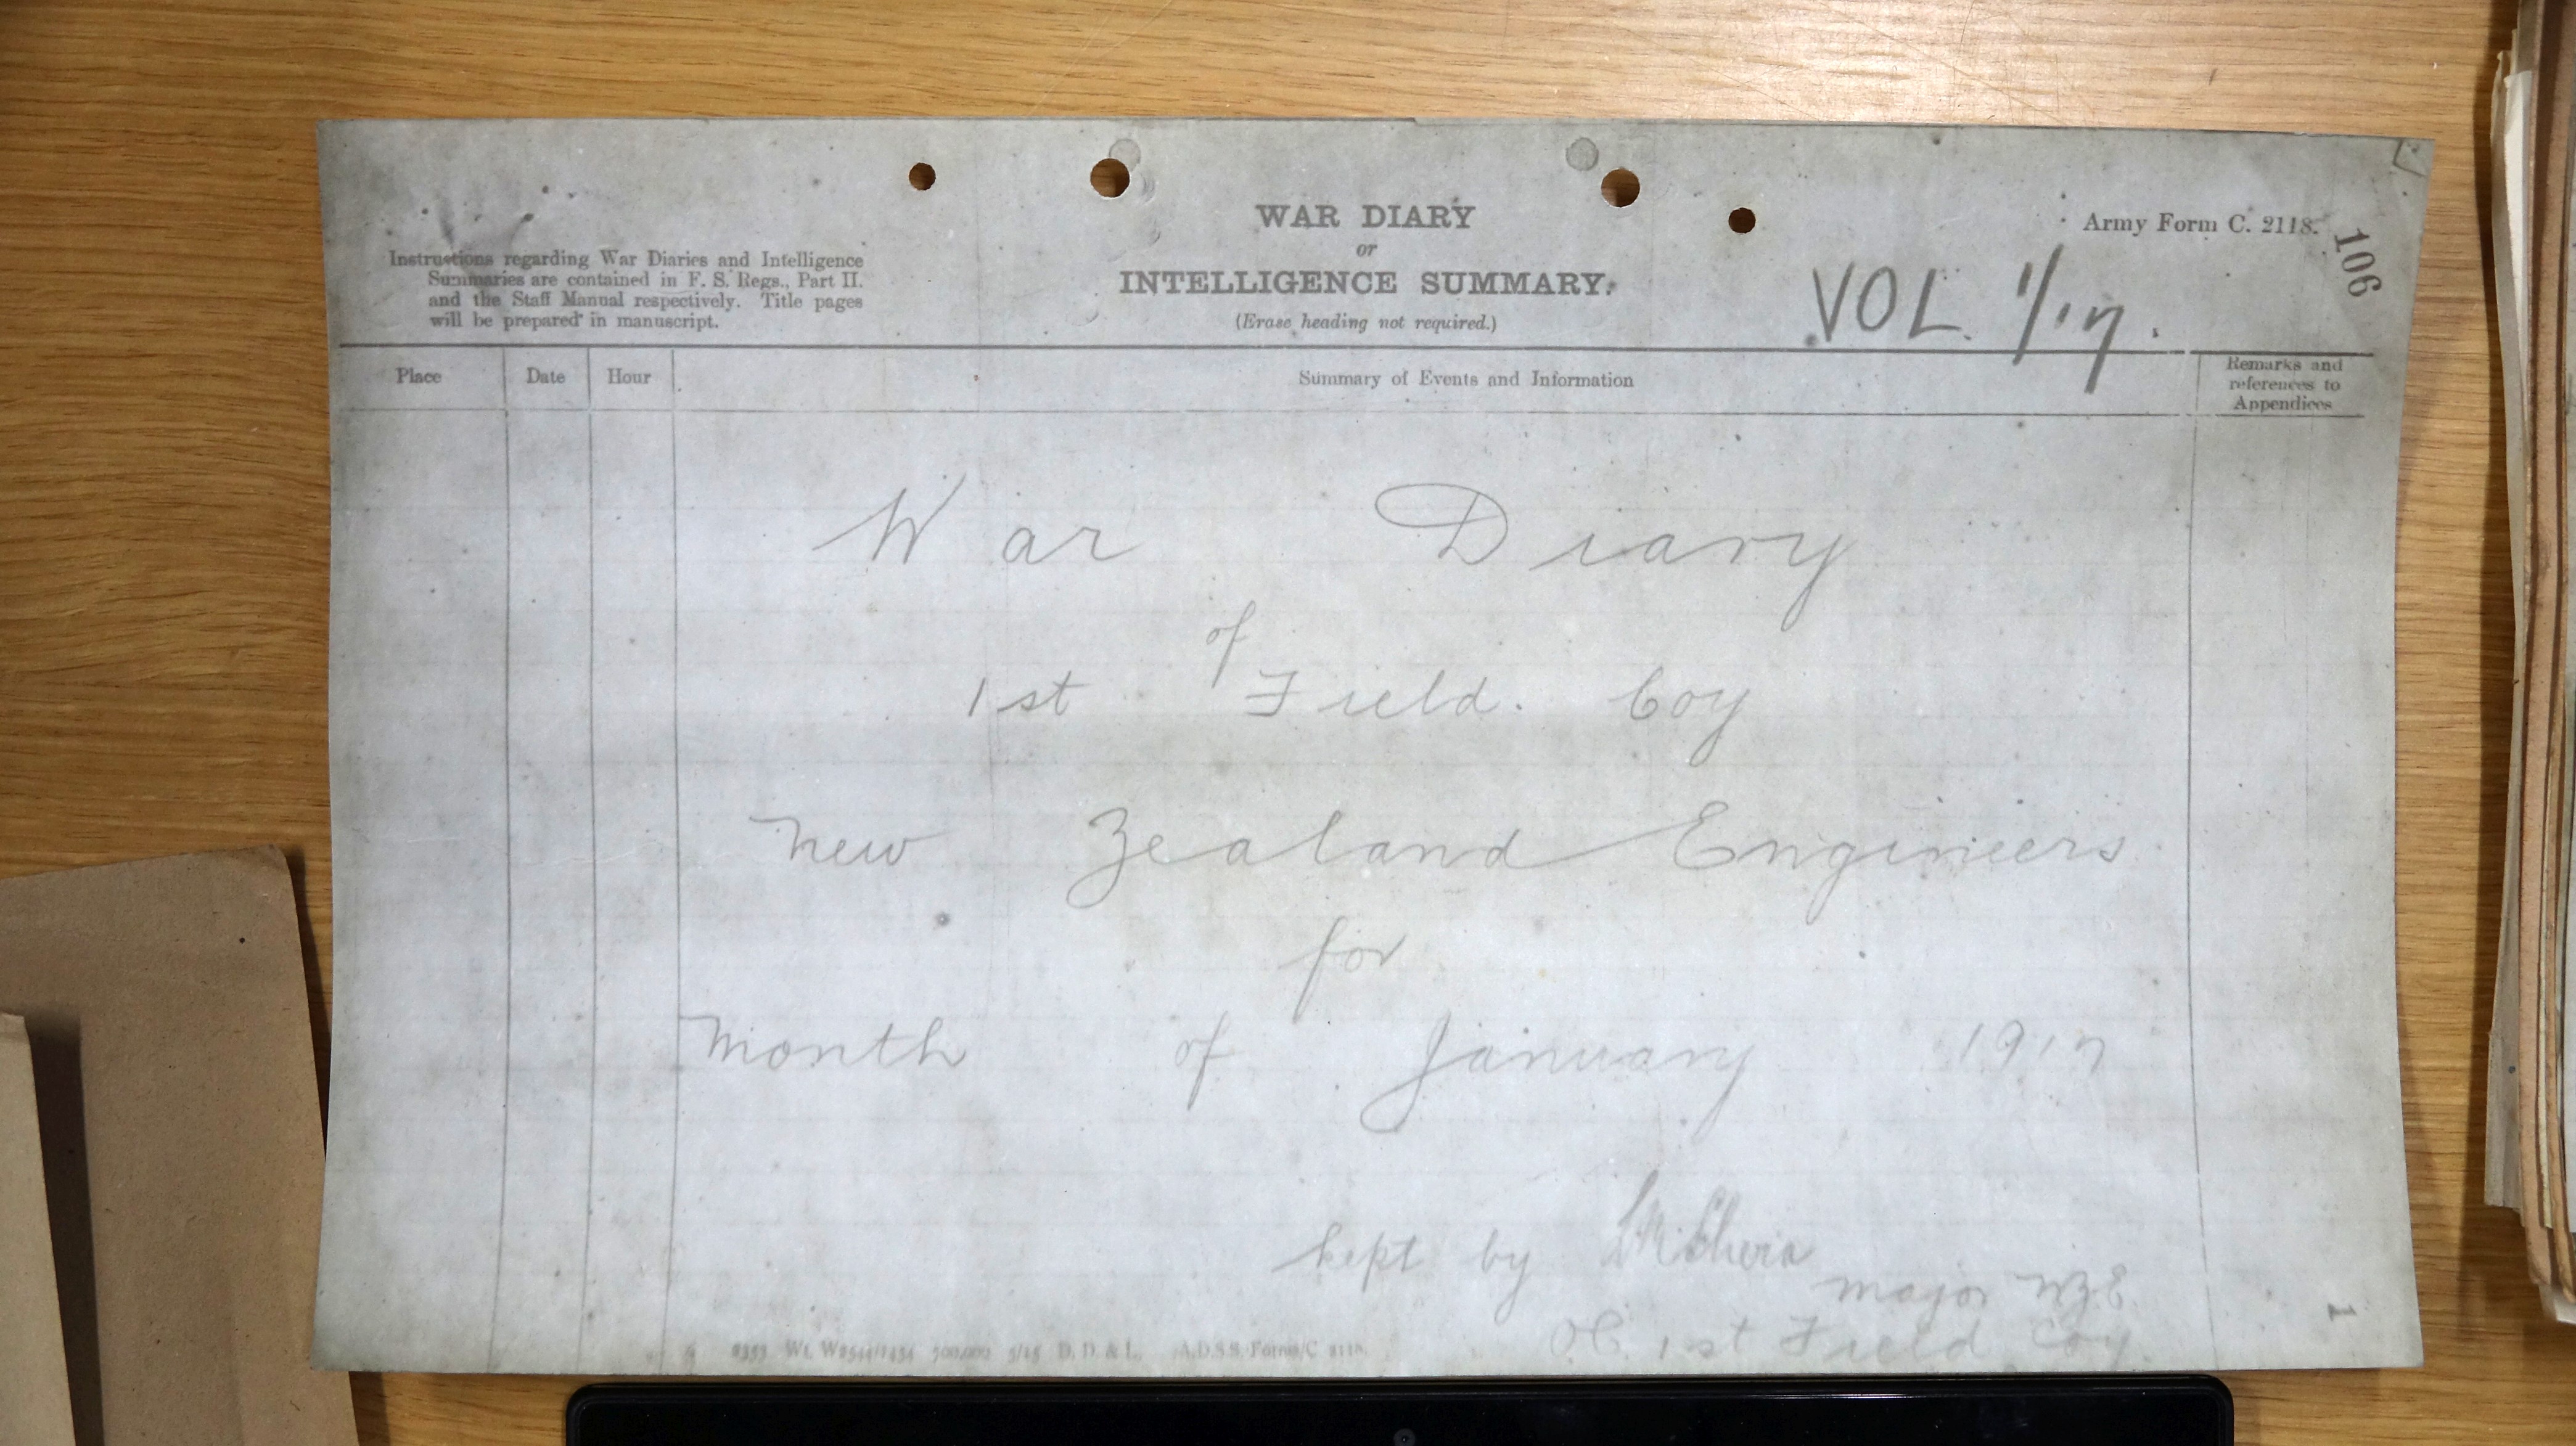 WAR DIARY
or
INTELLIGENCE SUMMARY.
(Erase heading not required.)
Army Form C. 2118.
106
Instructions regarding War Diaries and Intelligence
Summaries are contained in F. S. Regs., Part II.
and the Staff Manual respectively. Title pages
will be prepared in manuscript.
VOL. 1/17.
Place
Date
Hour
Summary of Events and Information
Remarks and
references to
Appendices
War Diary
of
1st Field. Coy
New Zealand Engineers
for
Month of January 1917
kept by
Major NZE
O.C. 1st Field Coy.
1
500,000 5/15 D. D. & L. A.D.S.S. Forms/C 2118.